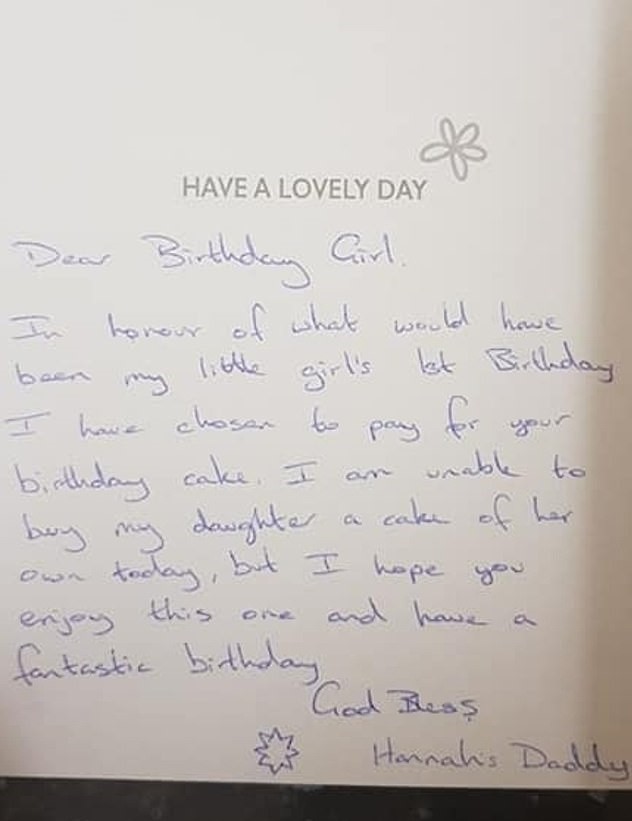 HAVE A LOVELY DAY
Dear Birthday Girl.
In honour of what would have
been my little girl's 1st Birthday
I have chosen to pay for your
birthday cake. I am unable to
buy my daughter a cake of her
own today, but I hope you
enjoy this one and have a
fantastic birthday
God Bless
Hannah's Daddy